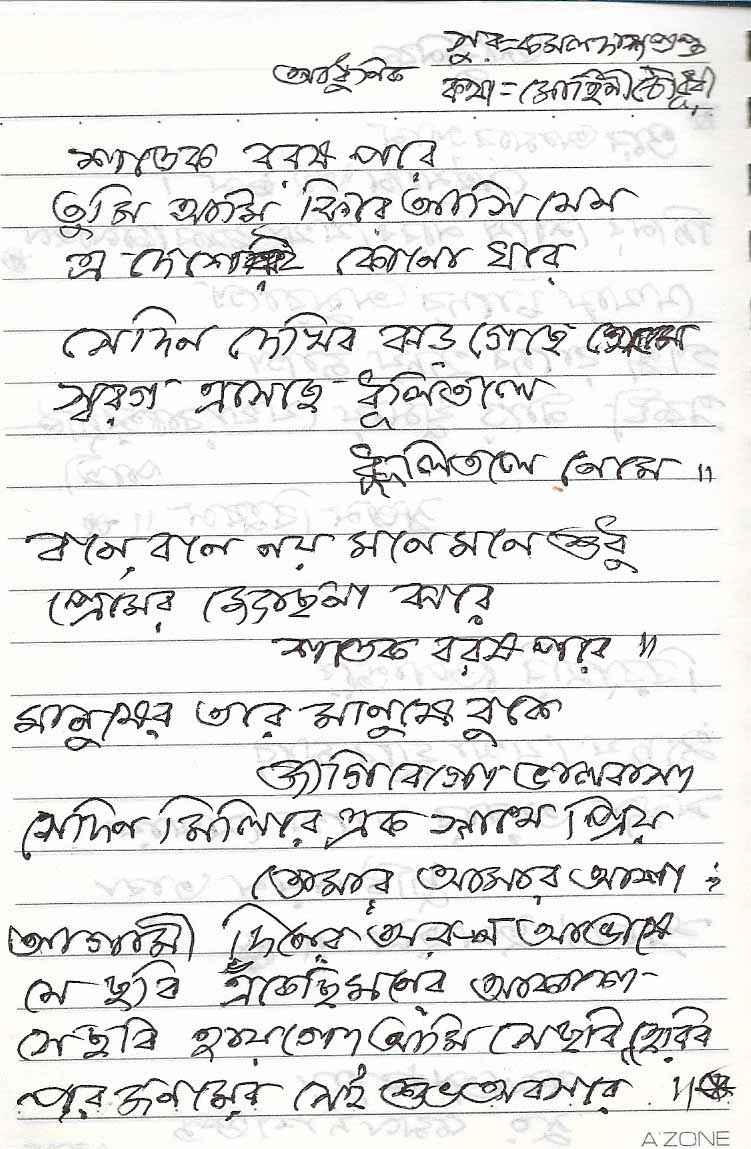 সুর=কমল দাশগুপ্ত
আধুনিক কথা=মোহিনী চৌধুরী
শতেক বরষ পরে
তুমি আমি ফিরে আসি যেন
এ দেশেরই কোনো ঘরে
সেদিন দেখিব ঝড় গেছে থেমে
স্বরগ এসেছে ধূলিতলে
ধূলিতলে নেমে ॥
বনে বনে নয় মনে মনে শুধু
প্রেমের জোছনা ঝরে
শতেক বরষ পরে ॥
মানুষের তরে মানুষের বুকে
জাগিবে গো ভালবাসা
সেদিন মিলিবে এক সাথে প্রিয়
তোমার আমার আশা ;
আগামী দিনের অরুণ আভাষে
যে ছবি এঁকেছি মনের আকাশে
সে ছবি হয়তো আমি সে ছবি হেরিব
পর জনমের সেই শুভ অবসরে ॥
A'ZONE